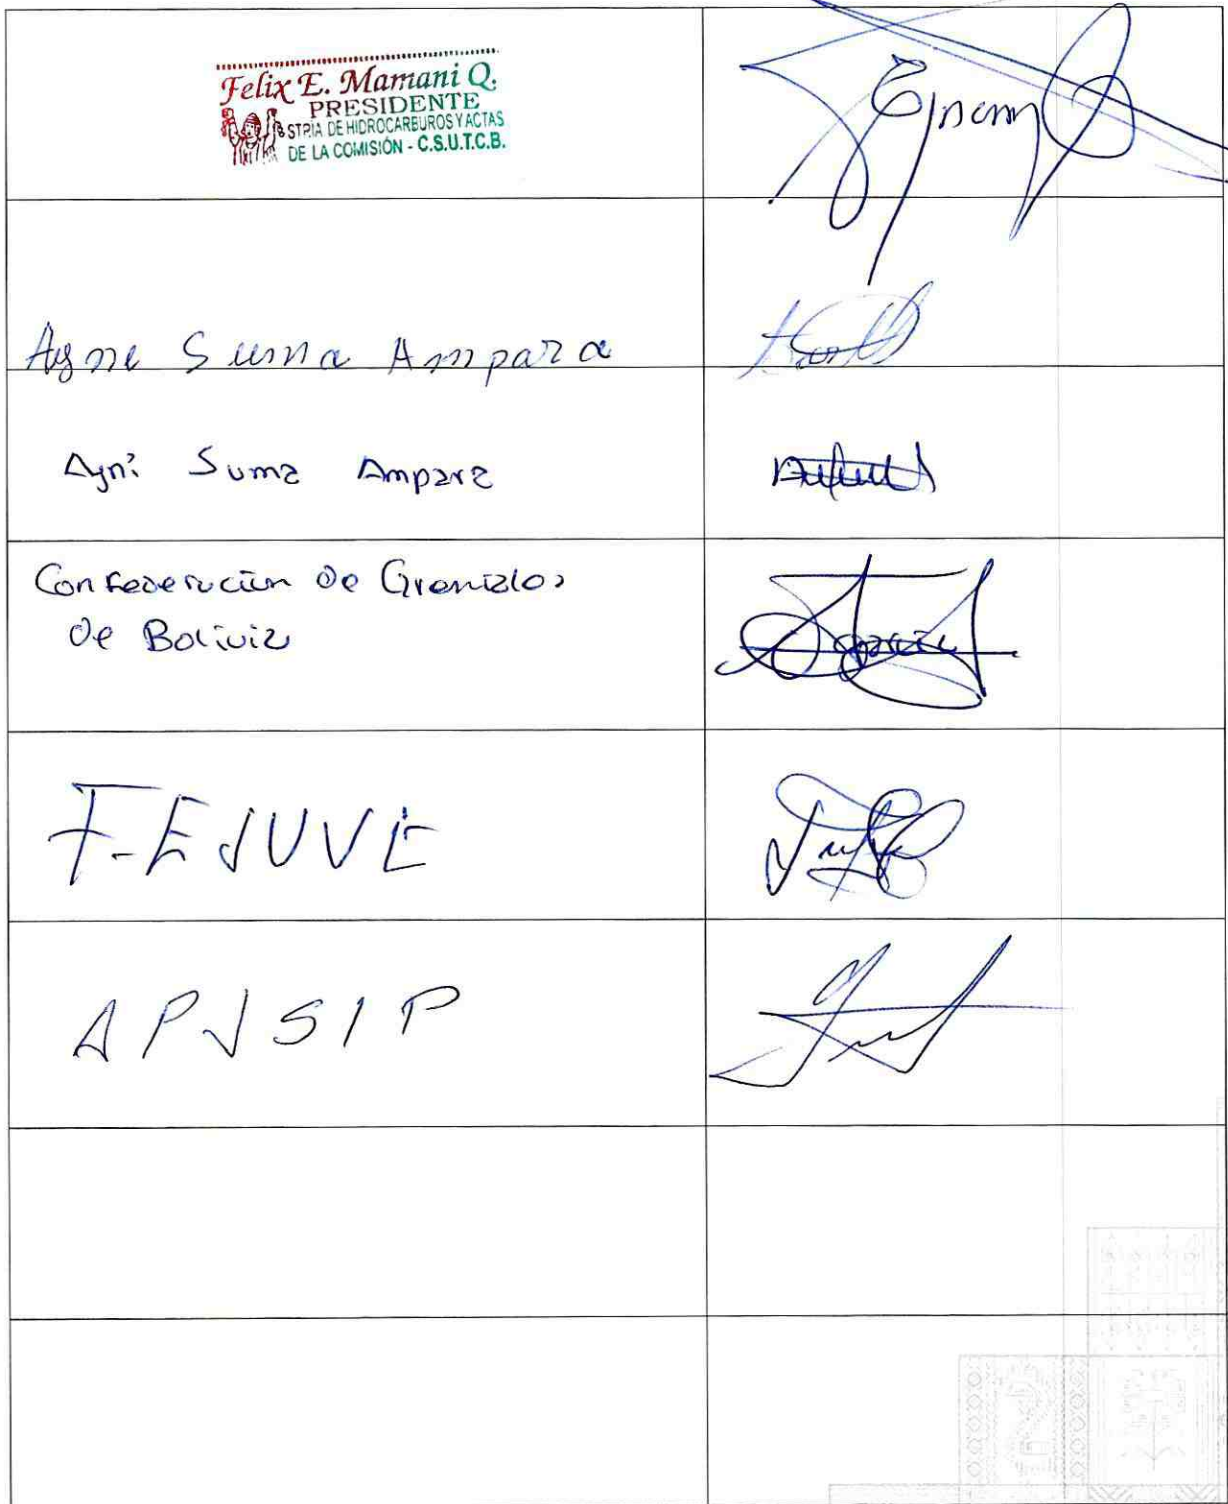 Felix E. Mamani Q.
PRESIDENTE
STRIA DE HIDROCARBUROS Y ACTAS
DE LA COMISIÓN - C.S.U.T.C.B.
Ayne Suma Ampara
Ayni Suma Ampara
Confederación De Gremiales
De Bolivia
F-EJUVE
APJSIP